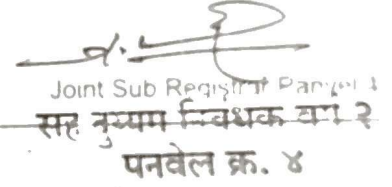 Joint Sub Registrar Panvel 4
सह दुय्यम निबंधक वर्ग २
पनवेल क्र. ४